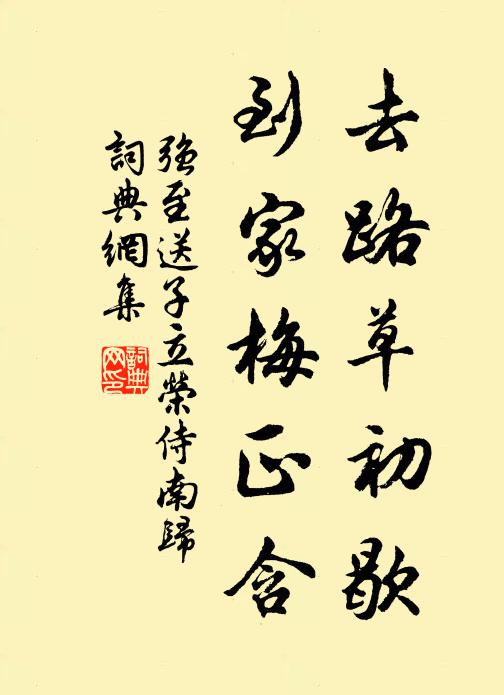 去路草初歇
到家梅正含
强至送子立榮侍南歸
詞典網集
詞典網印